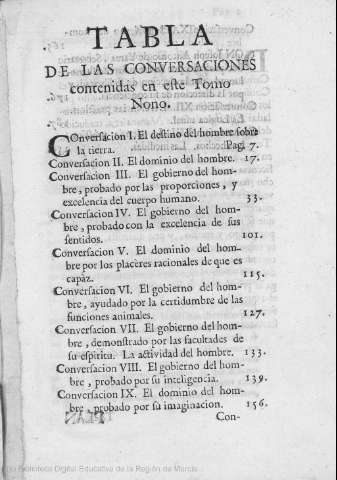 TABLA
DE LAS CONVERSACIONES
contenidas en este Tomo
Nono.
COnversacion I. El destino del hombre sobre
la tierra. Pag. 7.
Conversacion II. El dominio del hombre. 17.
Conversacion III. El gobierno del hom-
bre, probado por las proporciones, y
excelencia del cuerpo humano. 33.
Conversacion IV. El gobierno del hom-
bre, probado con la excelencia de sus
sentidos. 101.
Conversacion V. El dominio del hom-
bre por los placeres racionales de que es
capáz. 115.
Conversacion VI. El gobierno del hom-
bre, ayudado por la certidumbre de las
funciones animales. 127.
Conversacion VII. El gobierno del hom-
bre, demonstrado por las facultades de
su espiritu. La actividad del hombre. 133.
Conversacion VIII. El gobierno del hom-
bre, probado por su inteligencia. 139.
Conversacion IX. El dominio del hom-
bre, probado por su imaginacion. 156.
Con-
Biblioteca Digital Educativa de la Región de Murcia